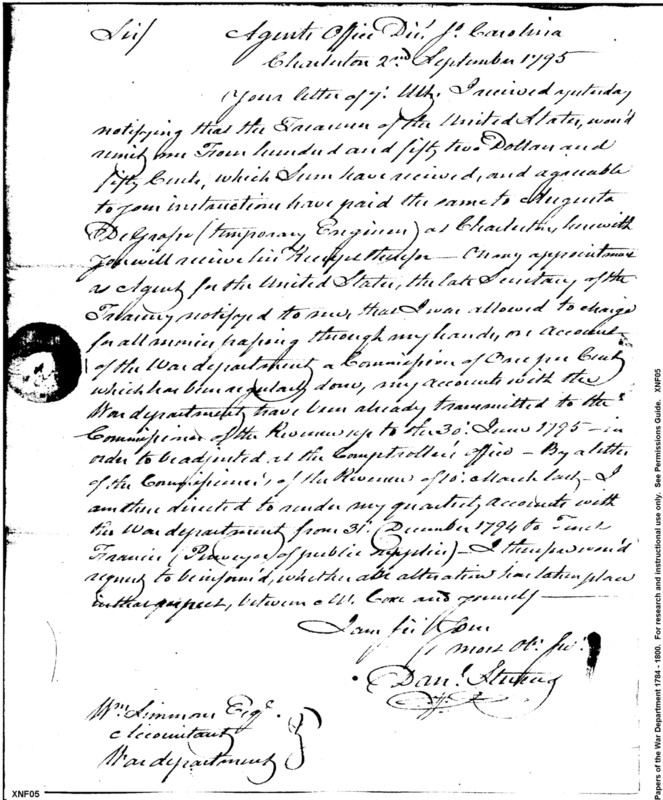 Sir/ Agents Office Dis.t So. Carolina
Charleston 2nd September 1795
Your letter of y.e Ult.o I received yesterday
notifying that the Treasurer of the United States, wou'd
remit me Four hundred and fifty two Dollars and
fifty Cents, which Sum have received, and agreeable
to your instruction have paid the same to Augusta
DeGrasse (temporary Engineer) at Charleston, herewith
you will receive his Receipt therefor — On my appointment
as Agent for the United States, the late Secretary of the
Treasury notifyed to me, that I was allowed to charge
for all monies passing through my hands, on Account
of the War department a Commission of One per Cent
which has been regularly done, my accounts with the
War department, have been already transmitted to the
Commissioner of the Revenue up to the 30.' June 1795 — in
order to be adjusted at the Comptroller's office — By a letter
of the Commissioner's of the Revenue of 10.' March last — I
am there directed to render my quarterly accounts with
the War department from 31.' December 1794 to Tench
Francis (Purveyor of public supplies) — I therefore wou'd
request to be inform'd, whether an alteration has taken place
in that respect, between Mr. Coxe and yourself —
I am Sir Your
most Ob.' Ser.'
Dan.l Stevens
Wm. Simmons Esq.r
Accountant
War department
XNF05
Papers of the War Department 1784 - 1800. For research and instructional use only. See Permissions Guide. XNF05